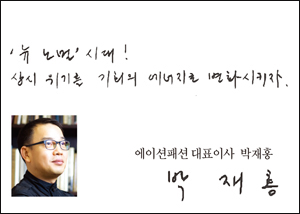 '뉴 노멀' 시대!
상시 위기를 기회의 에너지로 변화시키자.
에이션패션 대표이사 박재홍
박 재 홍